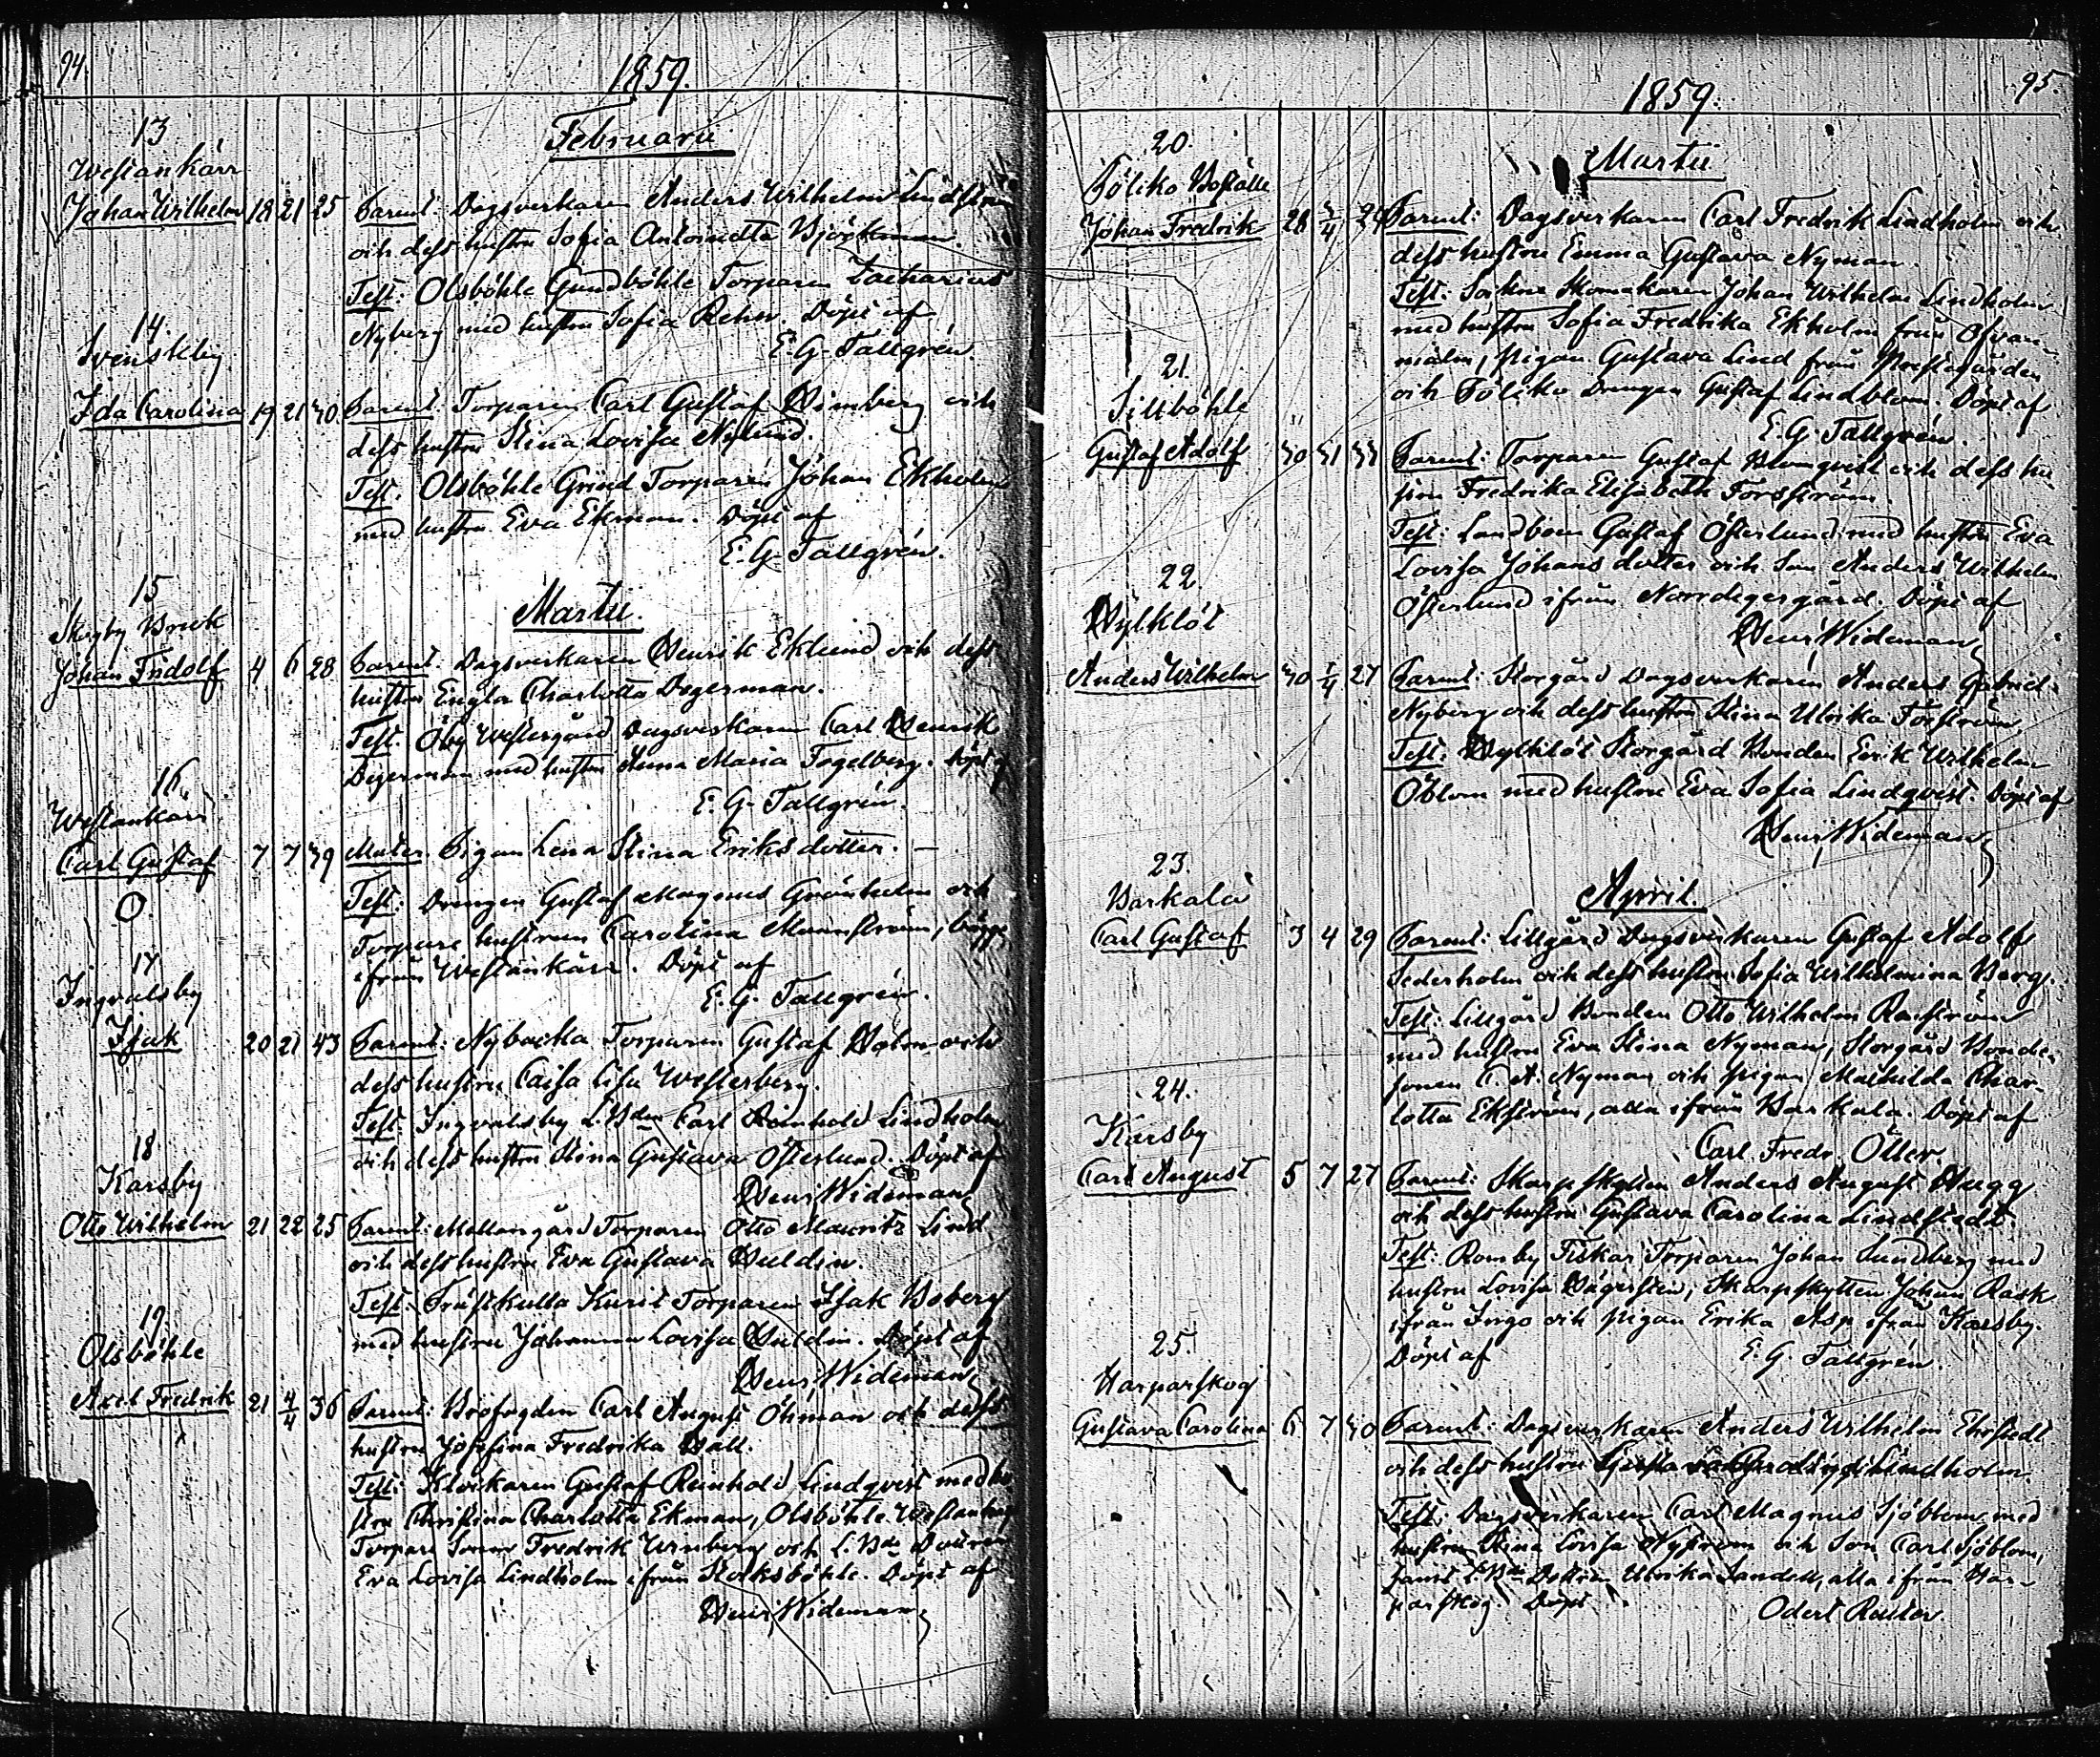 94.
1859.
Februarii
13
Westankärr
Johan Wilhelm 18 21 25 Parent: Dagsverkaren Anders Wilhelm Lindström
och dess hustru Sofia Antoinetta Björkman.
Test: Olsböhle Gundböhle Torparen Zacharias
Nyberg med hustru Sofia Rehn. Döpt af
E. G. Tallgrén.
14.
Svenskby
Ida Carolina 19 21 30 Parent. Torparen Carl Gustaf Wimberg och
dess hustru Stina Lovisa Nylund.
Test. Olsböhle Grind Torparen Johan Ekholm
med hustru Eva Ekman. Döpt af
E. G. Tallgrén.
Martii.
15
Skogby Bruk
Johan Fridolf 4 6 28 Parent. Dagsverkaren Henrik Eklund och dess
hustru Engla Charlotta Degerman.
Test. Öby Westergård Dagsverkaren Carl Henrik
Degerman med hustru Anna Maria Fogelberg. Döpt af
E. G. Tallgrén.
16.
Westankärr
Carl Gustaf 7 7 39 Mater. Pigan Lena Stina Eriksdotter. —
O
Test: Drengen Gustaf Magnus Grönholm och
Torpare hustrun Carolina Mannström, bägge
ifrån Westankärr. Döpt af
E. G. Tallgrén.
17
Ingvalsby
Isak 20 21 43 Parent: Nybacka Torparen Gustaf Holm och
dess hustru Caisa Lisa Westerberg.
Test. Ingvalsby L. Bden Carl Reinhold Lindholm
och dess hustru Stina Gustava Österlund. Döpt af
Henr. Wideman
18
Karsby
Otto Wilhelm 21 22 25 Parent: Mellangård Torparen Otto Mauritz Lind
och dess hustru Eva Gustava Huldin.
Test. Kurit Torparen Isak Boberg
med hustru Johanna Lovisa Huldin. Döpt af
Henr. Wideman
19
Olsböhle
Axel Fredrik 21 4/4 36 Parent: Brofogden Carl August Öhman och dess
hustru Josefina Fredrika Hall.
Test: Klockaren Gustaf Reinhold Lindqvist med hu-
stru Christina Charlotta Ekman, Olsböhle
Torpare Sonen Fredrik och L. Bde Dottren
Eva Lovisa Lindholm ifrån Starksböhle. Döpt af
Henr. Wideman
95.
1859.
Martii
20.
Föliko Boställe
Johan Fredrik 28 3/4 Parent: Dagsverkaren Carl Fredrik Lindholm och
dess hustru Emma Gustava Nyman
Test. Sockne Skomakaren Johan Wilhelm Lindholm
med hustru Sofia Fredrika Ekholm från Ofvan-
malm, pigan Gustava Lind från Prestegården
och Föliko Drengen Gustaf Lindblom. Döpt af
E. G. Tallgrén.
21.
Sillböhle
Gustaf Adolf 30 31 33 Parent: Torparen Gustaf Blomqvist och dess hu-
stru Fredrika Elisabeth Forsström.
Test: Landbon Gustaf Österlund med hustru Eva
Lovisa Johansdotter och Son Anders Wilhelm
Österlund ifrån Norrdegergård. Döpt af
Henr. Wideman
22.
Hylklöt
Anders Wilhelm 30 1/4 27 Parent: Storgård Dagsverkaren Anders Gabriel
Nyberg och dess hustru Stina Ulrika Forström
Test. Hylklöt Storgård Bonden Erik Wilhelm
Öblom med hustru Eva Sofia Lindqvist. Döpt af
Henr. Wideman
April.
23.
Barkala
Carl Gustaf 3 4 29 Parent: Lillgård Dagsverkaren Gustaf Adolf
Sederholm och dess hustru Sofia Wilhelmina Berg.
Test: Lillgård Bonden Otto Wilhelm
med hustru Eva Stina Nyman, Storgård Bonde-
sonen C. A. Nyman och pigan Mathilda Char-
lotta Ekström, alla ifrån Barkala. Döpt af
Carl Fredr. Öller.
24.
Karsby
Carl August 5 7 27 Parent: Skarpskytten Anders August Hugg
och dess hustru Gustava Carolina Lindstedt
Test: Romby Fiskar Torparen Johan Sundberg med
hustru Lovisa Hägersten, Skarpskytten Johan Rask
ifrån Ingo och pigan Erika Asp ifrån Karsby.
Döpt af E. G. Tallgrén.
25.
Harparskog
Gustava Carolina 6 7 30 Parent: Dagsverkaren Anders Wilhelm Ekstedt
och dess hustru Lindholm.
Test: Dagsverkaren Carl Magnus Sjöblom med
hustru Stina Lovisa Nyström och Son Carl Sjöblom,
samt L. Bde Dottren Ulrika Sandell, alla ifrån Har-
parskog. Döpt
Odert Reuter.